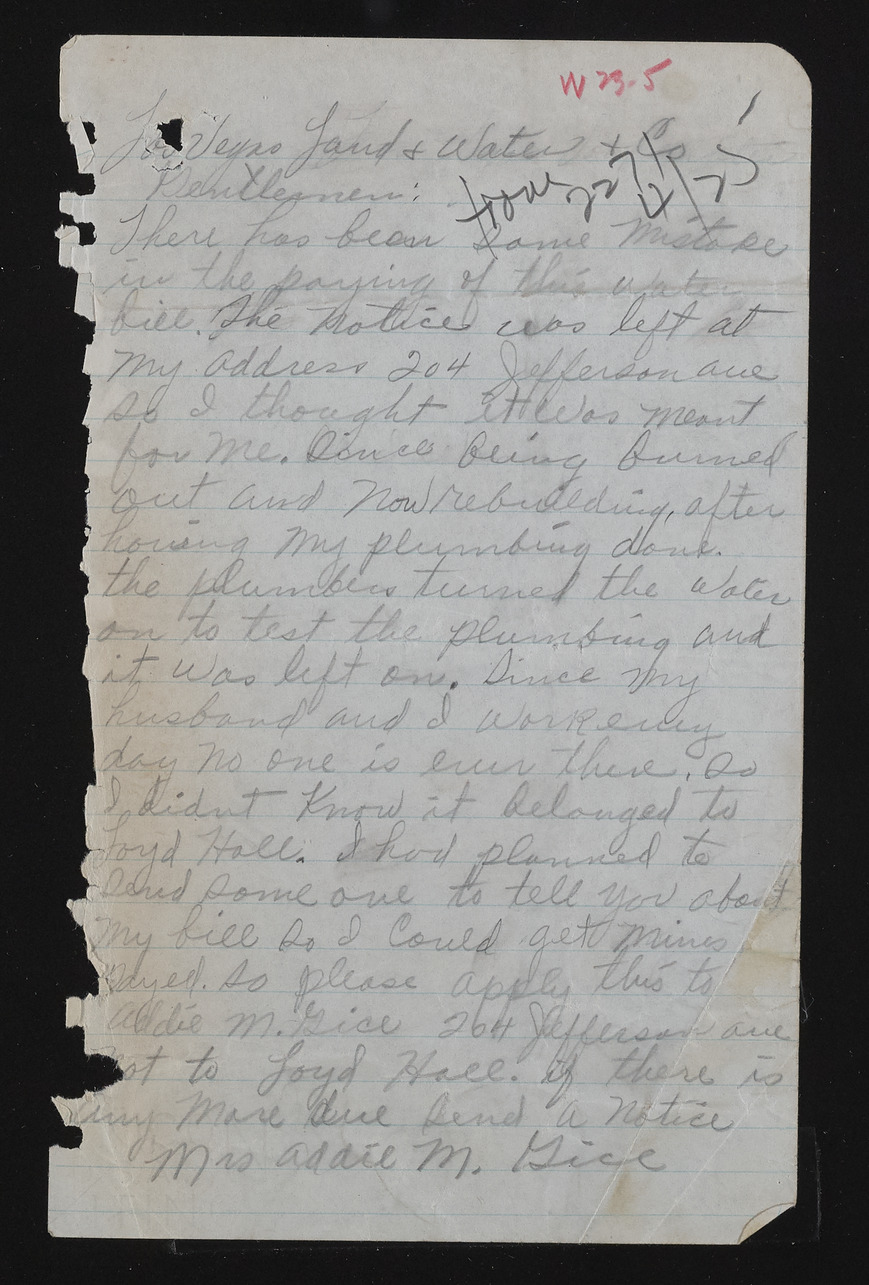 W 23-5
Las Vegas Land & Water & Co
Gentlemen:
227
There has been some mistake
in the paying of this water
bill. The notice was left at
my address 204 Jefferson ave
so I thought it was meant
for me. Since being burned
out and now rebuilding, after
having my plumbing done.
the plumbers turned the water
on to test the plumbing and
it was left on. Since my
husband and I work every
day no one is ever there. So
I didnt know it belonged to
Loyd Hall. I had planned to
send some one to tell you about
my bill so I could get mines
payed. so please apply this to
Addie M. Gice 204 Jefferson ave
not to Loyd Hall. if there is
any more due send a notice
Mrs Addie M. Gice